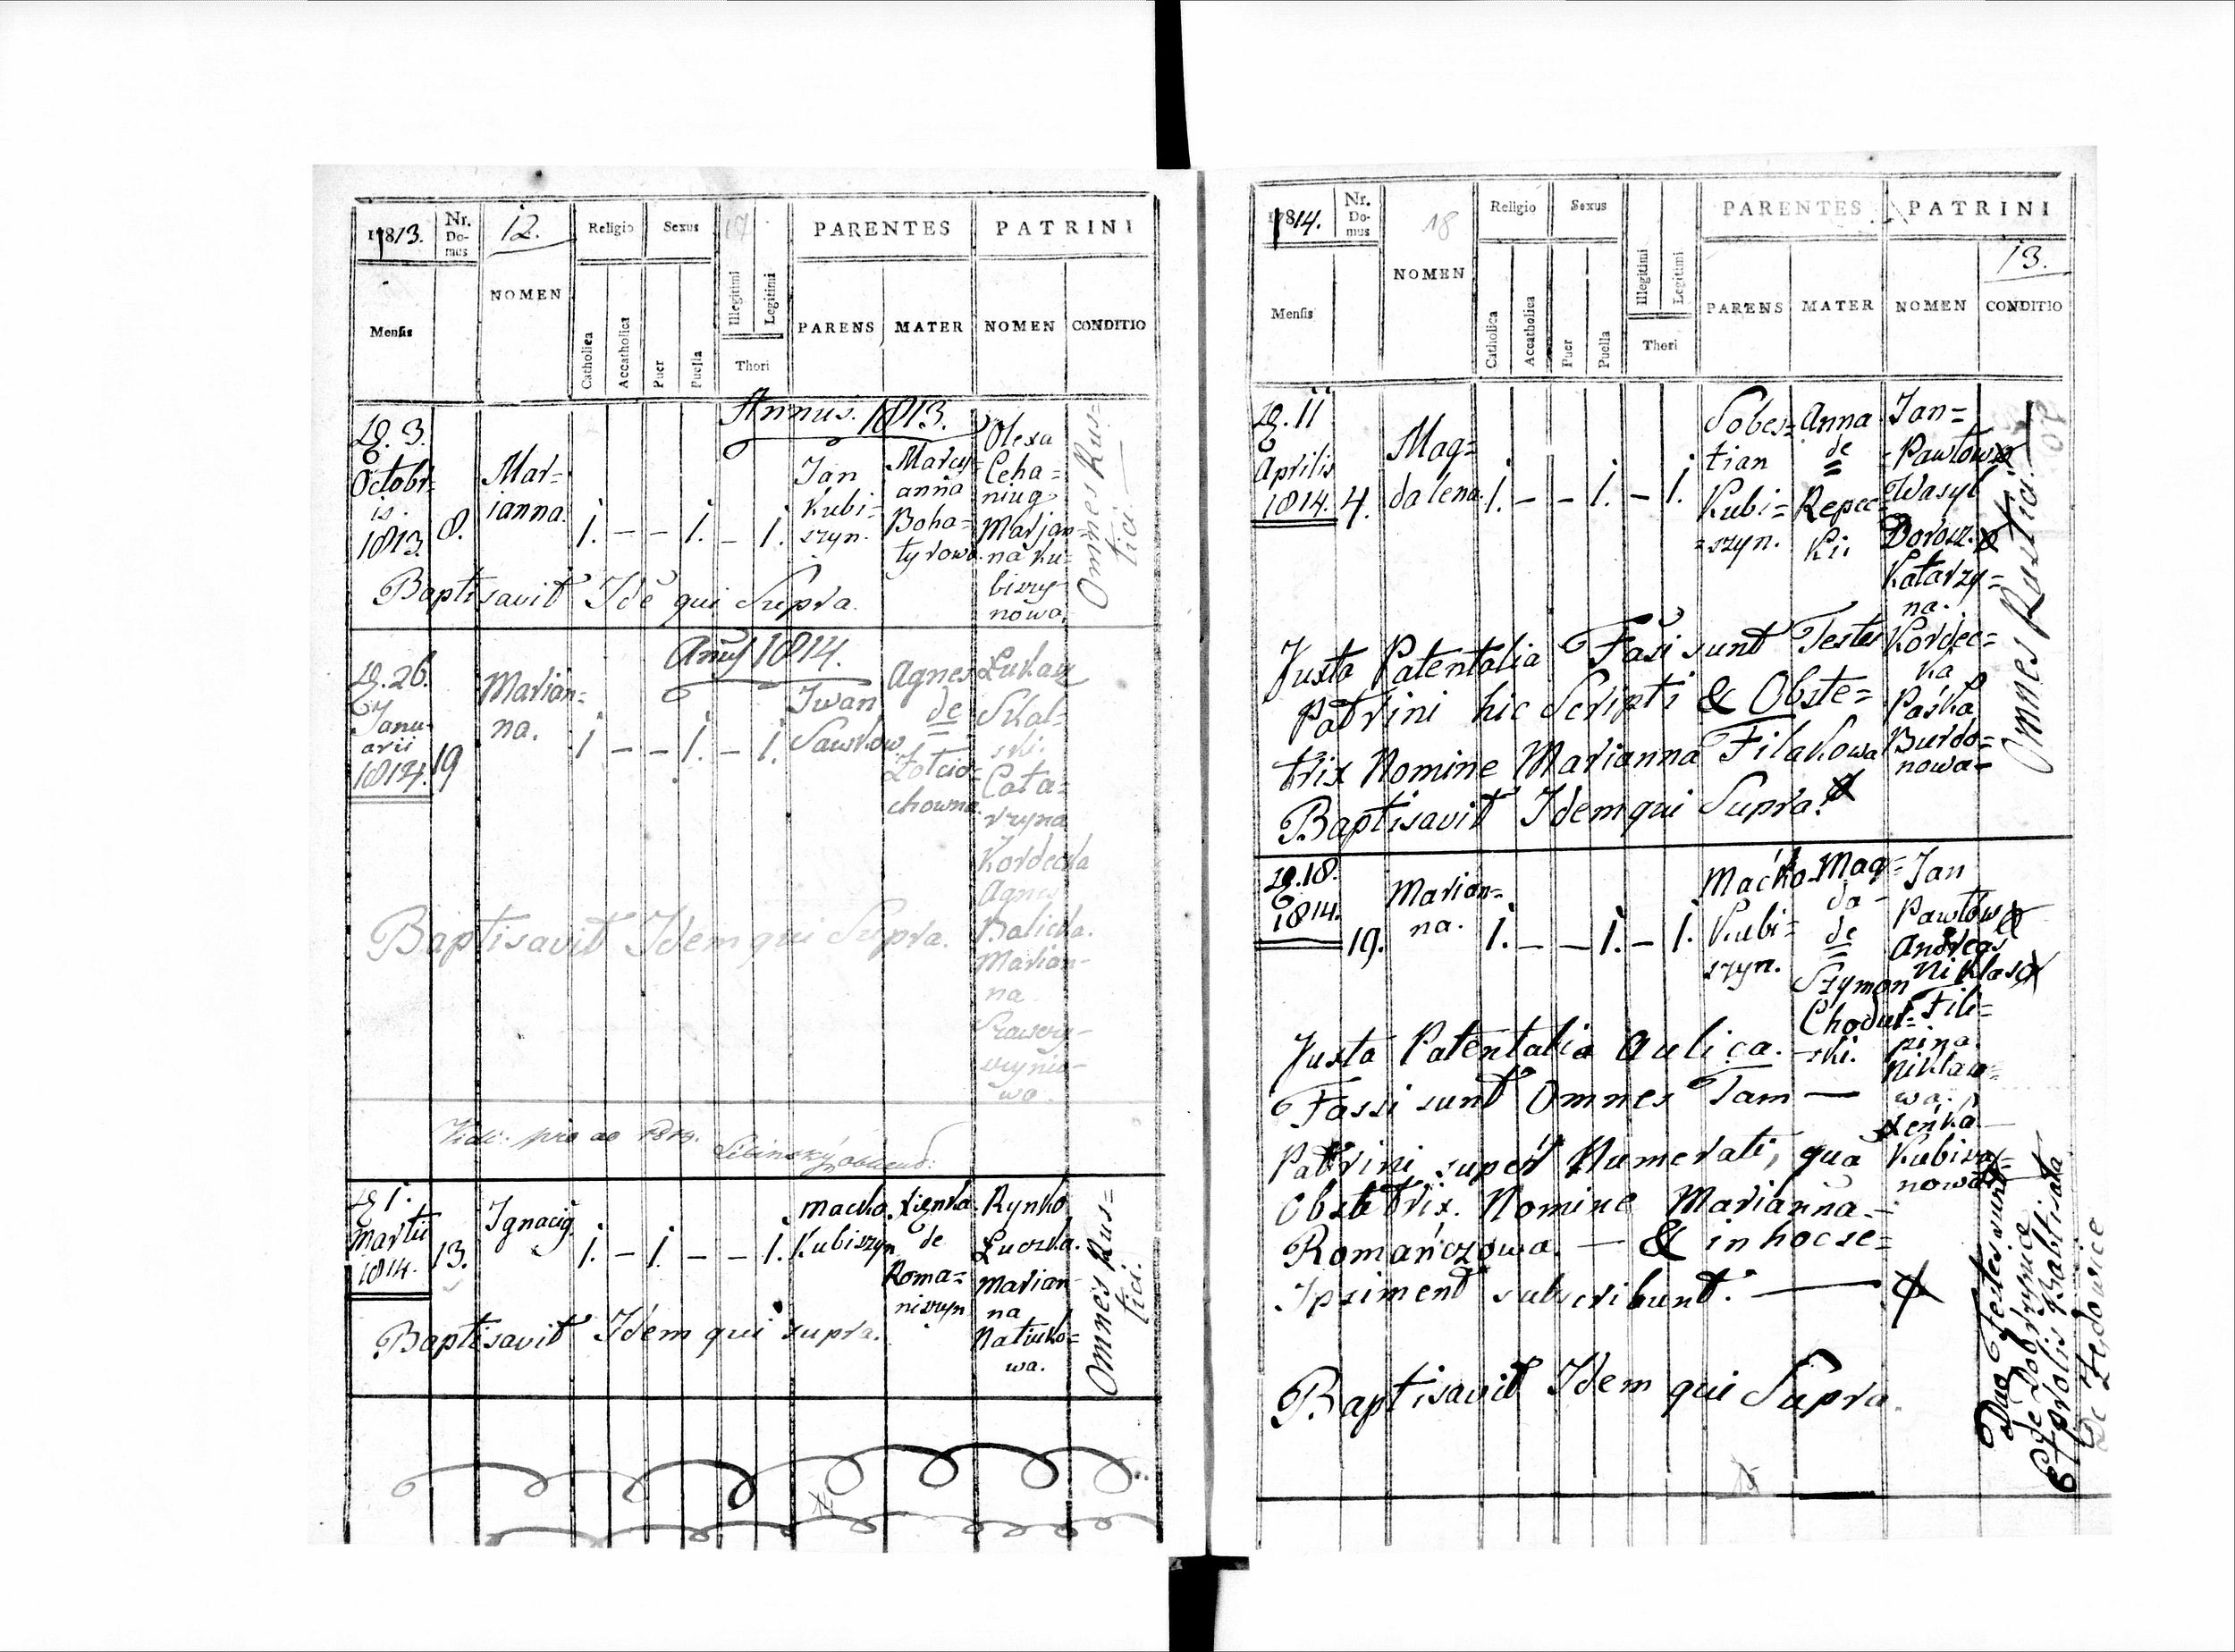 1813.
Nr. Do-
mus
12.
Religio
Sexus
17
PARENTES
PATRINI
Mensis
NOMEN
Catholica
Accatholica
Puer
Puella
Illegitimi
Legitimi
Thori
PARENS
MATER
NOMEN
CONDITIO
Annus. 1813.
D. 3.
Octobr=
is.
1813.
8.
Mar=
ianna.
1. – – 1. – 1.
Jan
Kubi=
szyn.
Marcy=
anna
Boha=
tyrowa.
Olexa
Ceha=
niug
Marjan=
na Ku=
biszy=
nowa.
Omnes Rus=
tici.
Baptisavit Idē qui Supra.
1814.
D. 26.
Janu-
arii
1814.
19
Marian=
na.
1 – – 1. – 1.
Iwan
Sawkow
Agnes
de
Zołcio=
chowna
Lukasz
Skal=
ski.
Cata=
rzyna
Kordecka
Agnes
Balicka.
Marian-
na
Baptisavit Idem qui Supra.
D 1.
Martii
1814.
13.
Ignacig
1. – 1. – – 1.
Macko
Kubiszyn
Xienka
de
Roma=
niszyn
Rynko
Luczka.
Marian
na
Natiuko=
wa.
Omnes Rus=
tici.
Baptisavit Idem qui supra.
1814.
Nr.
Do-
mus
18
NOMEN
Religio
Sexus
PARENTES
PATRINI
13.
Mensis
Catholica
Accatholica
Puer
Puella
Illegitimi
Legitimi
Thori
PARENS
MATER
NOMEN
CONDITIO
D. 11
Aprilis
1814.
4.
Mag=
dalena.
1. – – 1. – 1.
Sobes=
tian
Kubi=
=szyn.
Anna
de
Repec=
kii
Jan=
=Pawłow
Wasyl
Dorosz.
Katarzy=
na.
Kordec=
ka
Paśka
Burdo=
nowa=
Omnes Rustici.
Juxta Patentalia Fasi sunt Testes
Patrini hic Scripti & Obste=
trix Nomine Marianna Filakowa
Baptisavit Idem qui Supra.
D. 18.
1814.
19.
Marian=
na.
1. – – 1. – 1.
Maćko
Kubi=
szyn.
Mag=
da-
de
Szymon
Chodul=
-ski.
Jan
Pawłów
Andreas
Niklas
Fili=
pina.
Niklaso=
wa.
Xenka
Kubiszy=
nowa
Juxta Patentalia Aulica.
Fassi sunt Omnes Tam —
Patrini super Numerati, quā
Obstetrix. Nomine Marianna.-
Romańczowa. — & in hoc se=
Ipsiment subscribunt. —
Baptisavit Idem qui Supra.
Duo Testes sunt
de Dobrynice
Et prolis Babtisata
de Zedowice